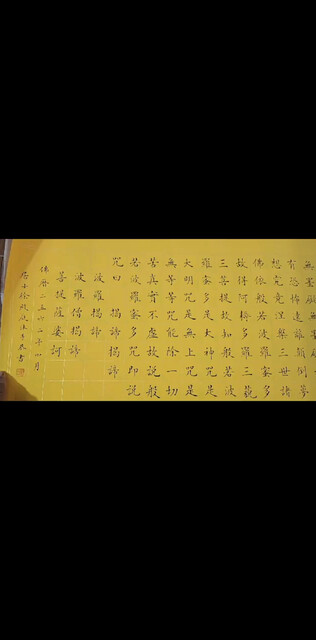 無罣礙無
有恐怖遠離顛倒夢
想究竟涅槃三世諸
佛依般若波羅蜜多
故得阿耨多羅三藐
三菩提故知般若波
羅蜜多是大神咒是
大明咒是無上咒是
無等等咒能除一切
苦真實不虛故說般
若波羅蜜多咒即說
咒曰 揭諦揭諦
波羅揭諦
波羅僧揭諦
菩提薩婆訶
佛曆二五六二年四月
居士徐書